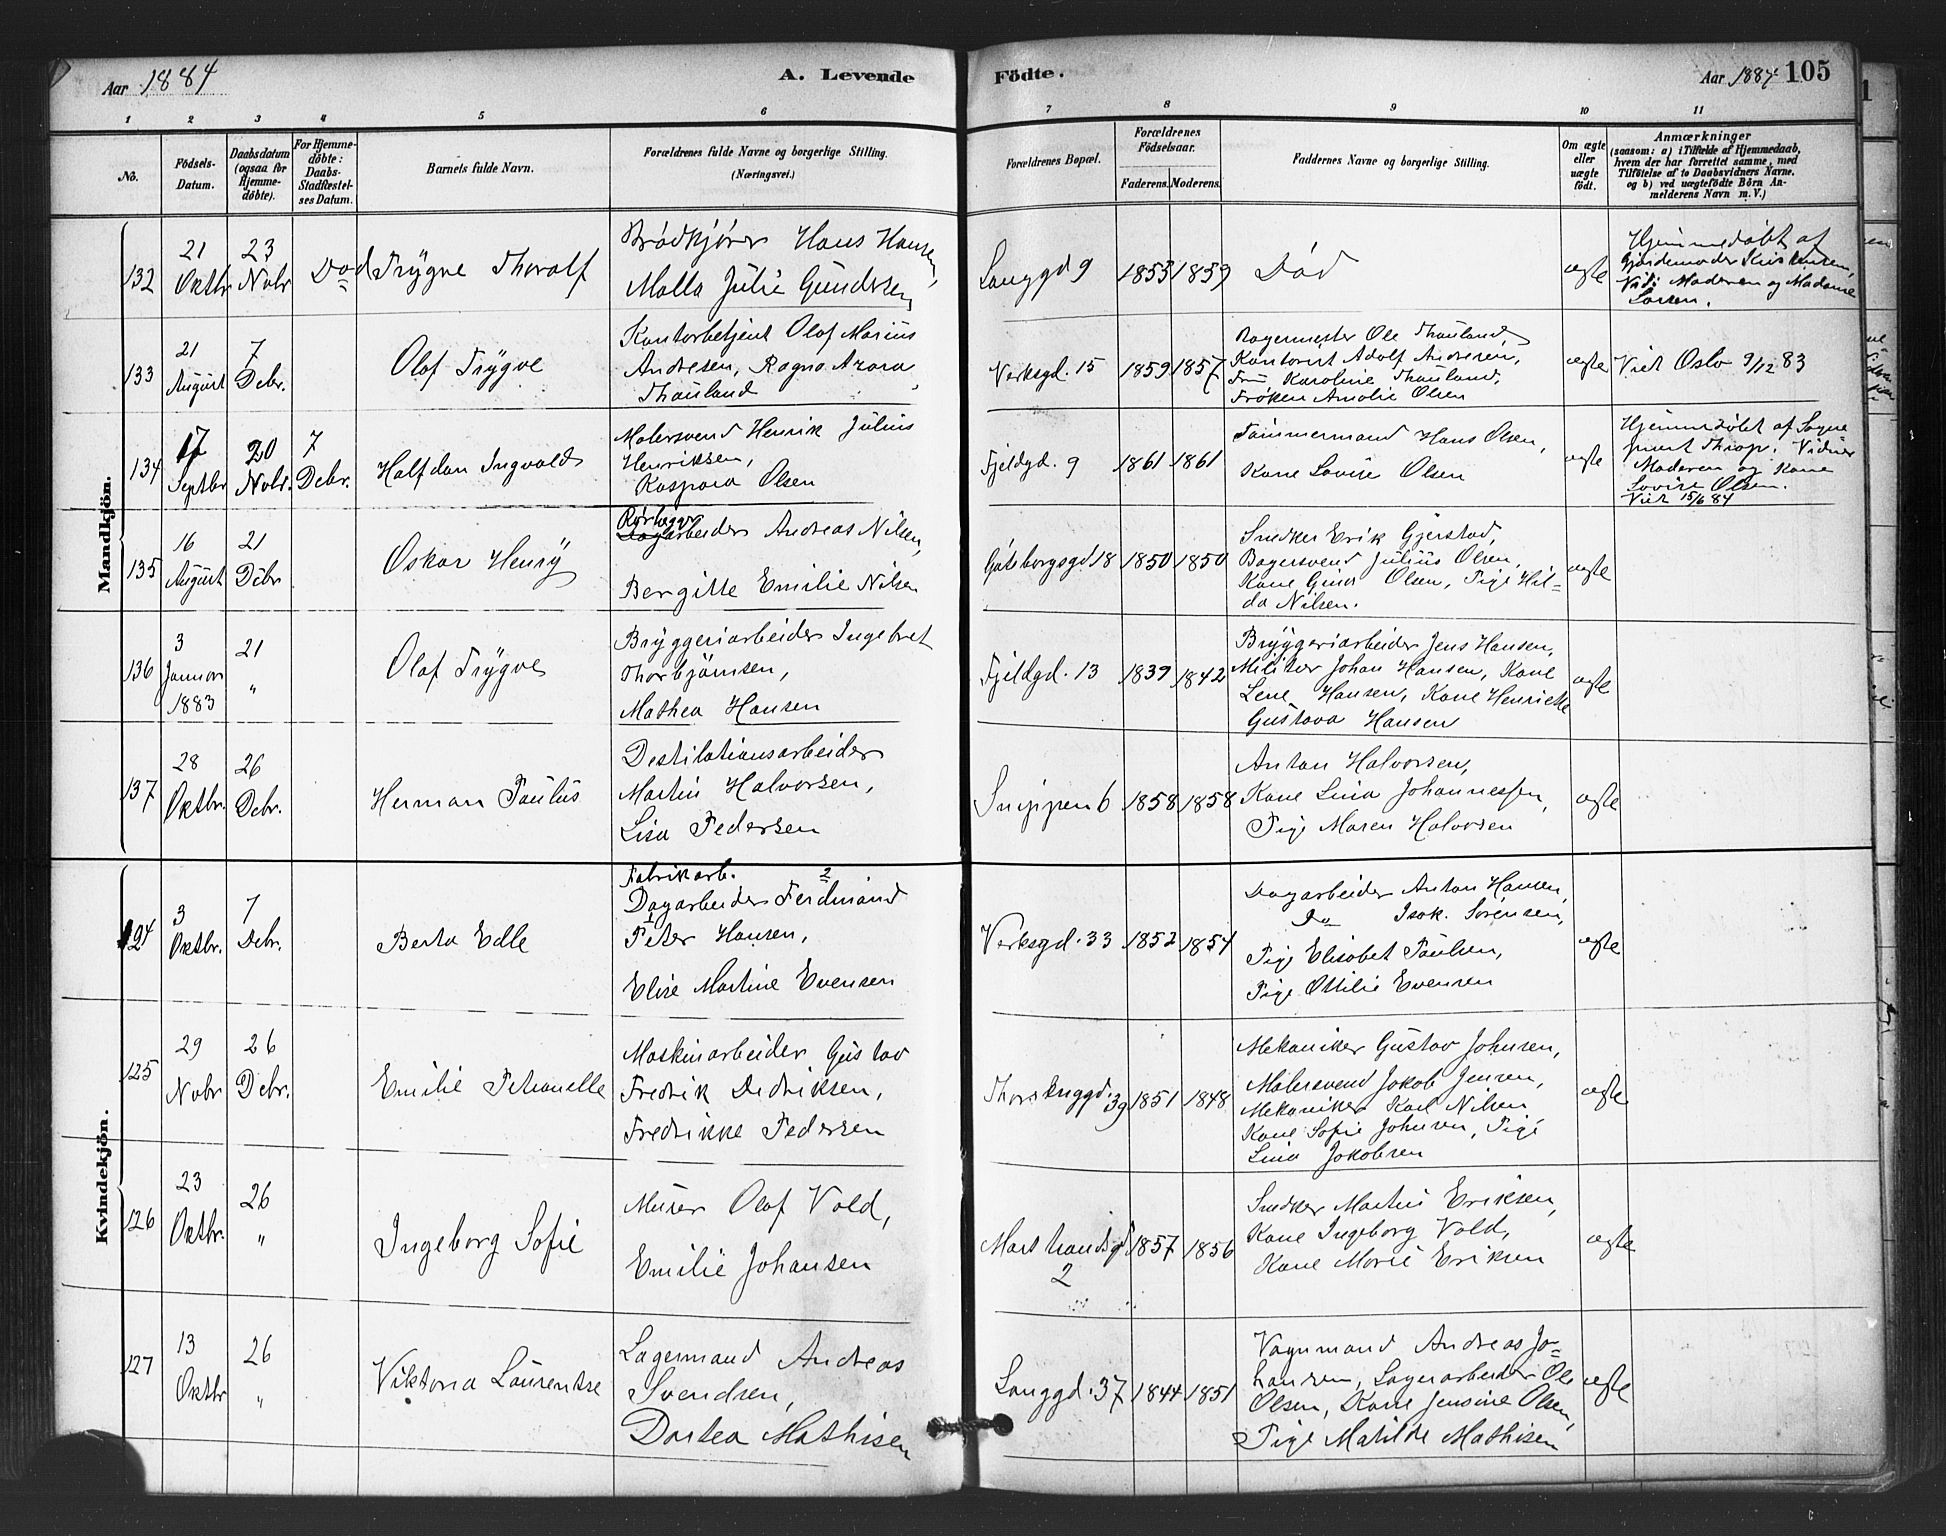 Aar 1884
A. Levende
Födte.
Aar 1884 105
1 2 3 4 5 6 7 8 9 10 11
No.
Födsels-
Datum.
Daabsdatum
(ogsaa for
Hjemme-
döbte).
For Hjemme-
döbte:
Daabs-
Stadfæstel-
ses Datum.
Barnets fulde Navn.
Forældrenes fulde Navne og borgerlige Stilling.
(Næringsvei.)
Forældrenes Bopæl.
Forældrenes
Födselsaar.
Faderens. Moderens.
Faddernes Navne og borgerlige Stilling.
Om ægte
eller
uægte
födt.
Anmærkninger
(saasom: a) i Tilfælde af Hjemmedaab,
hvem der har forrettet samme, med
Tilföielse af to Daabsvidners Navne,
og b) ved uægtefödte Börn An-
melderens Navn m. V.)
Mandkjön.
132
21
Oktbr
23
Nobr
Død
Trygve Thoralf
Brødkjører Hans Hansen,
Malla Julie Gundersen
Langgd 9
1855 1859
Død
ægte
Hjemmedøbt af
Gjordemoder Kristensen,
Vid: Moderen og Madame
Larsen.
133
21
August
7
Debr.
Olaf Trygve
Kontorbetjent Olaf Marius
Andresen, Ragna Azora
Thauland
Verksgd. 15
1859 1857
Bagermester Ole Thauland,
Kontorist Adolf Andresen,
Fru Karoline Thauland,
Frøken Amalie Olsen
ægte
Viet Oslo 9/12 83
134
17
Septbr
20
Nobr.
7
Debr.
Halfdan Ingvald
Malersvend Henrik Julius
Henriksen,
Kaspara Olsen
Fjeldgd. 9
1861 1861
Tømmermand Hans Olsen,
Kone Lovise Olsen
ægte
Hjemmedøbt af Sogne
prest Thrap. Vidner
Moderen og Kone
Lovise Olsen.
Viet 15/6 84
135
16
August
21
Debr
Oskar Henry
Rørlægger
Dagarbeider Andreas Nilsen,
Bergitte Emilie Nilsen
Gøteborgsgd 18
1850 1850
Snedker Erik Gjerstad,
Bagersvend Julius Olsen,
Kone Gina Olsen, Pige Hil-
da Nilsen.
ægte
136
3
Januar
1883
21
"
Olaf Trygve
Bryggeriarbeider Ingebret
Thorbjørnsen,
Mathea Hansen
Fjeldgd. 13
1839 1842
Bryggeriarbeider Jens Hansen,
Militær Johan Hansen, Kone
Lene Hansen, Kone Henriette
Gustava Hansen
ægte
137
28
Oktbr.
26
Debr.
Herman Paulus
Destilationsarbeider
Martin Halvorsen,
Lisa Pedersen
Snippen 6
1858 1858
Anton Halvorsen,
Kone Lina Johannessen,
Pige Maren Halvorsen
ægte
Kvindekjön.
124
3
Oktbr.
7
Debr.
Berta Edle
Fabrikarb. 2
Dagarbeider Ferdinand
1
Peter Hansen,
Elise Martine Evensen
Verksgd. 33
1852 1854
Dagarbeider Anton Hansen,
Do Isak. Sørensen,
Pige Elisabet Paulsen,
Pige Ottilie Evensen
ægte
125
29
Nobr
26
Debr.
Emilie Petronelle
Maskinarbeider Gustav
Fredrik Didriksen,
Fredrikke Pedersen
Thorsknggd. 39
1851 1848
Mekaniker Gustav Johnsen,
Malersvend Jakob Jensen,
Mekaniker Karl Nilsen
Kone Sofie Johnsen, Pige
Lina Jakobsen
ægte
126
23
Oktbr.
26
"
Ingeborg Sofie
Murer Olaf Vold,
Emilie Johansen
Marstrandsgd
2
1857 1856
Snedker Martin Eriksen,
Kone Ingeborg Vold,
Kone Marie Eriksen
ægte
127
13
Oktbr
26
"
Viktoria Laurentse
Lagermand Andreas
Svendsen,
Dortea Mathisen
Langgd. 37
1844 1851
Vognmand Andreas Jo-
hansen, Lagerarbeider Ole
Olsen, Kone Jensine Olsen,
Pige Matilde Mathisen
ægte